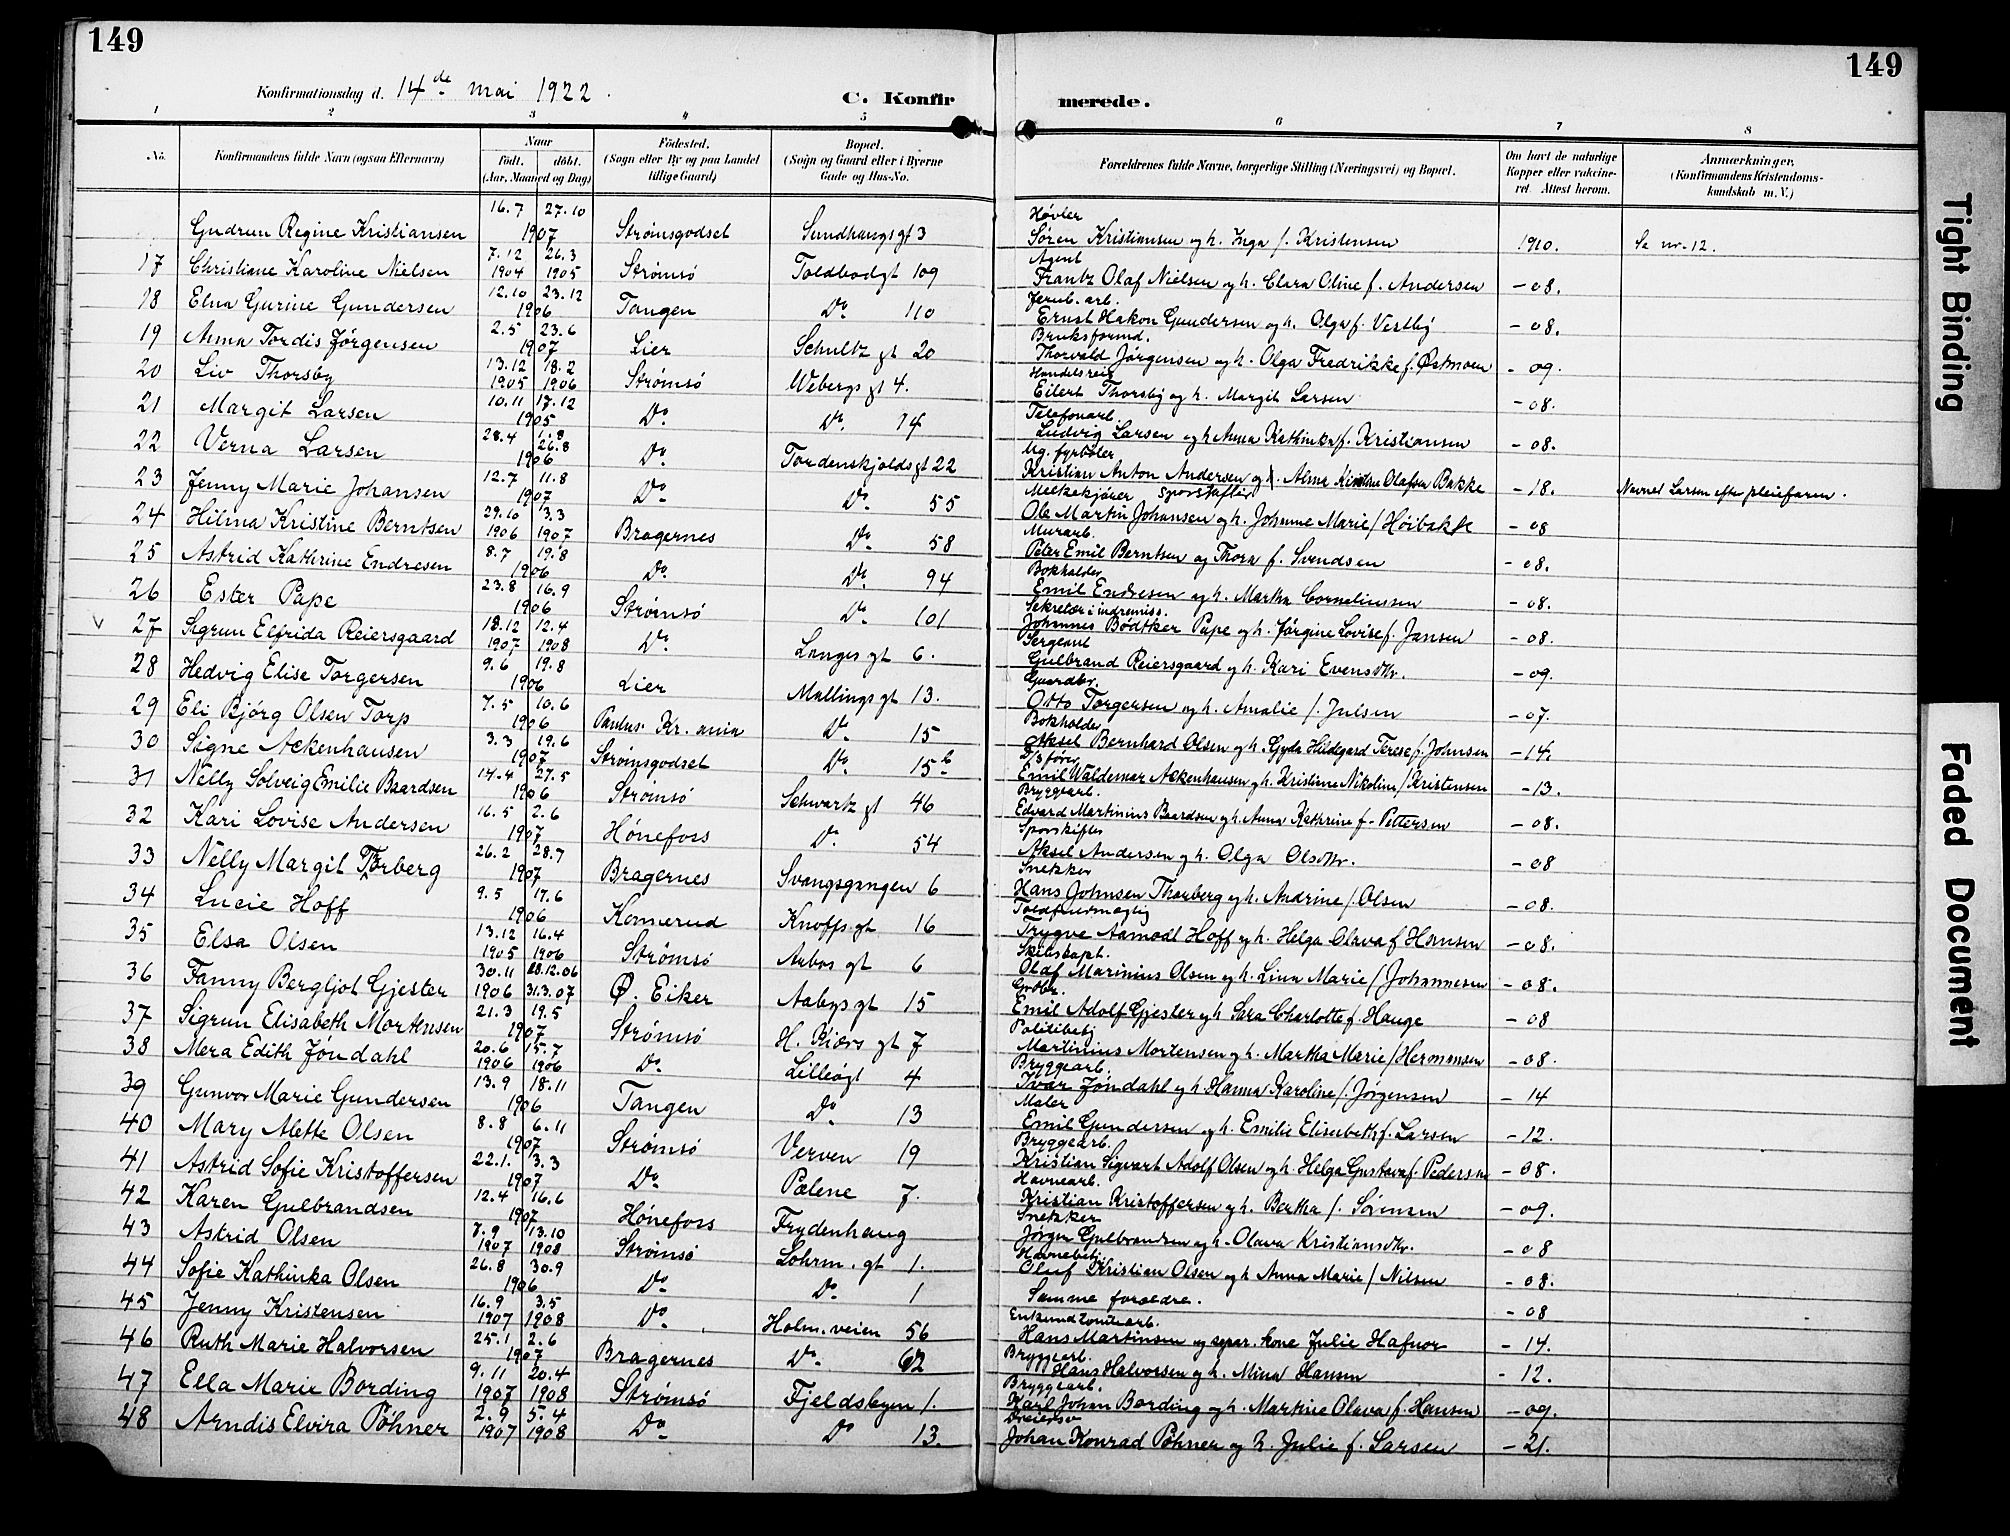 149
149
Konfirmationsdag d. 14de mai 1922.
C. Konfirmerede.
1 2 3 4 5 6 7 8
No. Konfirmandens fulde Navn (ogsaa Efternavn) Naar født. døbt. (Aar, Maaned og Dag) Fødested. (Sogn eller By og paa Landet tillige Gaard) Bopæl. (Sogn og Gaard eller i Byerne Gade og Hus-No. Forældrenes fulde Navne, borgerlige Stilling (Næringsvei) og Bopæl. Om havt de naturlige Kopper eller vakcineret. Attest herom. Anmærkninger. (Konfirmandens Kristendomskundskab m. V.)
Gudrun Regine Kristiansen 16.7 27.10 1907 Strømsgodset Sundhaugs gt 3 Høvler Søren Kristiansen og h. Inga f. Kristensen 1910. Se nr. 12.
17 Christiane Karoline Nielsen 7.12 1904 26.3 1905 Strømsø Toldbodgt 109 Agent Frantz Olaf Nielsen og h. Clara Oline f. Andersen -08.
18 Elna Gurine Gundersen 12.10 23.12 1906 Tangen Do 110 Jernb. arb. Ernst Hakon Gundersen og h. Olga f. Vestby -08.
19 Anna Tordis Jørgensen 2.5 23.6 1907 Lier Schultz gt 20 Bruksformd. Thorvald Jørgensen og h. Olga Fredrikke f. Østmoen -09.
20 Liv Thorsby 13.12 1905 18.2 1906 Strømsø Webergs gt 4. Handelsreis Eilert Thorsby og h. Margit Larsen -08.
21 Margit Larsen 10.11 17.12 1905 Do Do 14 Telefonarb. Ludvig Larsen og h Anna Kathinka f. Kristiansen -08.
22 Verna Larsen 28.4 26.8 1906 Do Tordenskjolds gt 22 Ug. fyrbøter Kristian Anton Andersen og Alma Kristine Olafsen Bakke -18. Navnet Larsen efter pleiefaren.
23 Jenny Marie Johansen 12.7 11.8 1907 Do Do 55 Melkekjører Sporskifter Ole Martin Johansen og h. Johanne Marie f Høibakke -08
24 Hilma Kristine Berntsen 29.10 1906 3.3 1907 Bragernes Do 58 Murarb. Peter Emil Berntsen og Thora f. Svendsen -08.
25 Astrid Kathrine Endresen 8.7 19.8 1906 Do Do 94 Bokholder Emil Endresen og h. Martha Corneliussen -08.
26 Ester Pape 23.8 16.9 1906 Strømsø Do 101 Sekretær i indremiss. Johannes Bødtker Pape og h. Jørgine Lovise f. Jansen -08.
27 Sigrun Elfrida Reiersgaard 18.12 1907 12.4 1908 Do Langes gt 6. Sergeant Gulbrand Reiersgaard og h. Kari Evensdtr. -09.
28 Hedvig Elise Torgersen 9.6 19.8 1906 Lier Mallings gt 13. Gaardbr. Otto Torgersen og h. Amalie f. Julsen -07.
29 Eli Bjørg Olsen Torp 7.5 10.6 1906 Paulus Kr. ania Do 15 Bokholder Aksel Bernhard Olsen og h. Gyda Hildegard Terese f. Johnsen -14.
30 Signe Ackenhausen 3.3 19.6 1907 Strømsgodset Do 15b D/s fører Emil Waldemar Ackenhausen og h. Kristiane Nikoline f Kristensen -13.
31 Nelly Solveig Emilie Baardsen 14.4 27.5 1906 Strømsø Schwartz gt 46 Bryggearb. Edvard Martinius Baardsen og h. Anna Kathrine f. Pettersen -08.
32 Kari Lovise Andersen 16.5 2.6 1907 Hønefoss Do 54 Sporskifter Aksel Andersen og h. Olga Olsdtr. -08
33 Nelly Margit Torberg 26.2 28.7 1907 Bragernes Svangsgangen 6 Snekker Hans Johnsen Thorberg og h. Andrine f. Olsen -08.
34 Lucie Hoff 9.5 17.6 1906 Konnerud Knoffs gt 16 Toldfuldmægtig Trygve Aamodt Hoff og h. Helga Olava f Hansen -08.
35 Elsa Olsen 13.12 1905 16.4 1906 Strømsø Aabos gt 6 Skibskapt. Olaf Marinius Olsen og h. Lina Marie f Johannesen -08.
36 Fanny Bergljot Gjester 30.11 1906 28.12.06 31.3.07 Ø. Eiker Aabys gt 15 Grdbr. Emil Adolf Gjester og h Sara Charlotte f. Hauge -08
37 Sigrun Elisabeth Mortensen 21.3 19.5 1907 Strømsø H. Kiærs gt 7 Politibetj Martinius Mortensen og h. Martha Marie f Hermansen -08.
38 Mera Edith Jøndahl 20.6 1906 15.7 1906 Do Lilleøgt 4 Bryggearb. Ivar Jøndahl og h. Hanna Karoline f. Jørgensen -14
39 Gunvor Marie Gundersen 13.9 18.11 1906 Tangen Do 13 Maler Emil Gundersen og h. Emilie Elisabeth f. Larsen -12.
40 Mary Alette Olsen 8.8 6.11 1907 Strømsø Verven 19 Bryggearb. Kristian Sigvart Adolf Olsen og h. Helga Gustava f. Pedersen -08.
41 Astrid Sofie Kristoffersen 22.1. 3.3 1907 Do Pælene 7. Havnearb. Kristian Kristoffersen og h. Bertha f. Sørensen -09.
42 Karen Gulbrandsen 12.4 16.6 1907 Hønefoss Frydenhaug Snekker Jørgen Gulbrandsen og h. Olava Kristiansdtr. -08
43 Astrid Olsen 7.9 1907 13.10 1908 Strømsø Lohrm. gt 1. Havnebetj. Oluf Kristian Olsen og h Anna Marie f Nilsen -08.
44 Sofie Kathinka Olsen 26.8 30.9 1906 Do Do 1 Samme foreldre. -08
45 Jenny Kristensen 16.9 1907 3.5 1908 Do Holm. veien 56 Enkemd tomtearb. Hans Martinsen og separ. kone Julie Hafnor -14.
46 Ruth Marie Halvorsen 25.1 2.6 1907 Bragernes Do 62 Bryggearb. Hans Halvorsen og h. Mina Hansen -12.
47 Ella Marie Bording 9.11 1907 20.4 1908 Strømsø Fjeldsbyen 1. Bryggearb. Karl Johan Bording og h. Martine Olava f. Hansen -09.
48 Arndis Elvira Pöhner 2.9 1907 5.4 1908 Do Do 13. Johan Konrad Pöhner og h. Julie f. Larsen -21.
Tight Binding
Faded Document